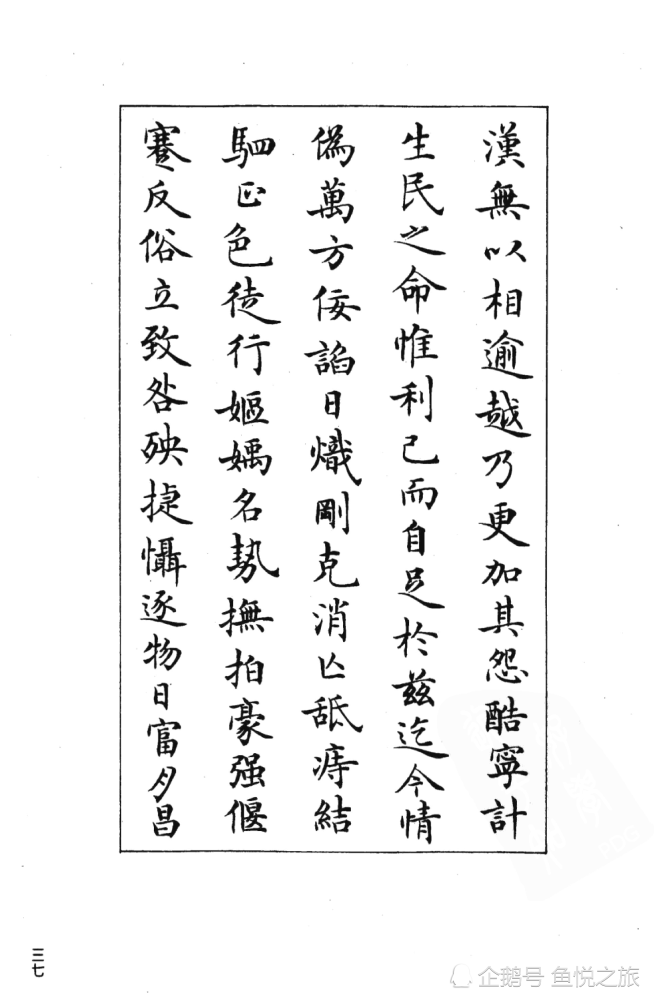 漢無以相逾越乃更加其怨酷寧計
生民之命惟利己而自足於兹迄今情
偽萬方佞諂日熾剛克消亡舐痔結
駟正色徒行嫗媀名埶撫拍豪强偃
蹇反俗立致咎殃捷懾逐物日富月昌
三七
企鹅号 鱼悦之旅